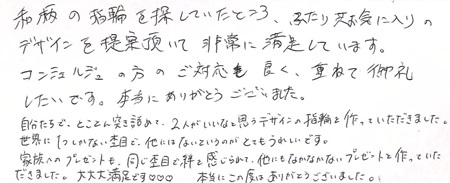 和柄の指輪を探していたところ、ふたり共お気に入りの
デザインを提案頂いて非常に満足しています。
コンシェルジュの方のご対応も良く、重ねて御礼
したいです。本当にありがとうございました。
自分たちで、とことん突き詰めて、2人がいいなと思うデザインの指輪を作っていただきました。
世界に1つしかない杢目で、他にはないというのがとてもうれしいです。
家族へのプレゼントも、同じ杢目で絆を感じられて、他にもなかなかないプレゼントを作っていた
だきました。大大大満足です♡♡♡ 本当にこの度はありがとうございました。